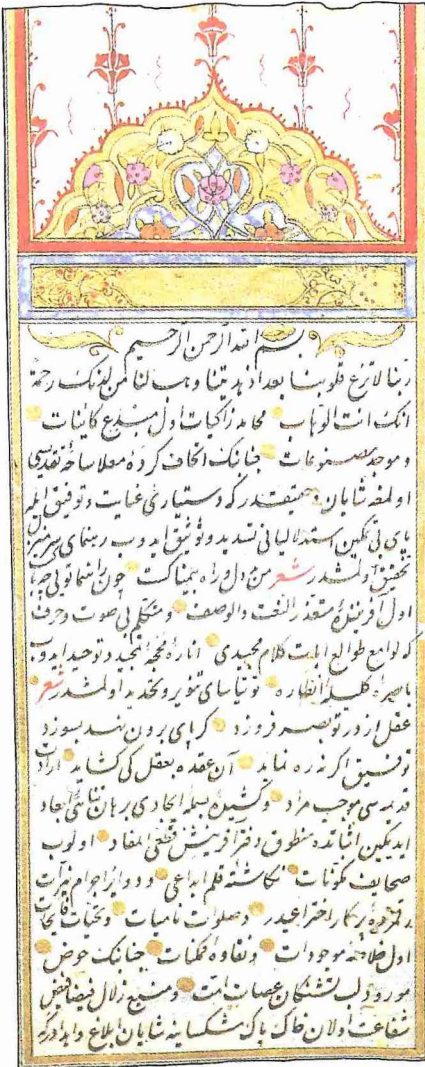 بسم الله الرحمن الرحيم
ربنا لا تزغ قلوبنا بعد اذ هديتنا وهب لنا من لدنك رحمة
انك انت الوهاب محامد زاكيات اول مبدع كائنات
وموجد مصنوعات جنابنك اتحاف كرده معلا ساحه تقديسى
اولمغه شايان وحقيقتدر كه دستيارئ عنايت وتوفيق ايله
پاى تمكين استدلاليانى تسديد وتوثيق ايدوب رهنماى سر منزل
تحقيق اولمشدر شعر من دل راه چون
اول آفريننده متعذر النعت والوصف ومتكلم بى صوت وحرف
كه لوامع طوالع كلام مجيدى اناره محجه تمجيد وتوحيد ايدوب
باصره انظاره توتياساى تنوير وتحديد اولمشدر شعر
عقل از در تو بصر فروزد كر پاى برون نهد بسوزد
توفيق اكر نه ره نمايد آن عقده بعقل كى كشايد ارادت
قديمه سى موجب مراد
ايديكين اثباتده منطوق دفتر آفرينش اولوب
صحايف مكونات نكاشته قلم ابداعى ودواير اجرام نيرات
رقمزده پركار اختراعيدر وصلوات ناميات وتحيات
اول خلاصه موجودات ونقاوه ممكنات جنابنك حوض
مورود لب تشنكان عصات امت ومنبع زلال فيضا فيض
شفاعت اولان خاك پاك مشكسا شايان ابلاغ واهدادركه